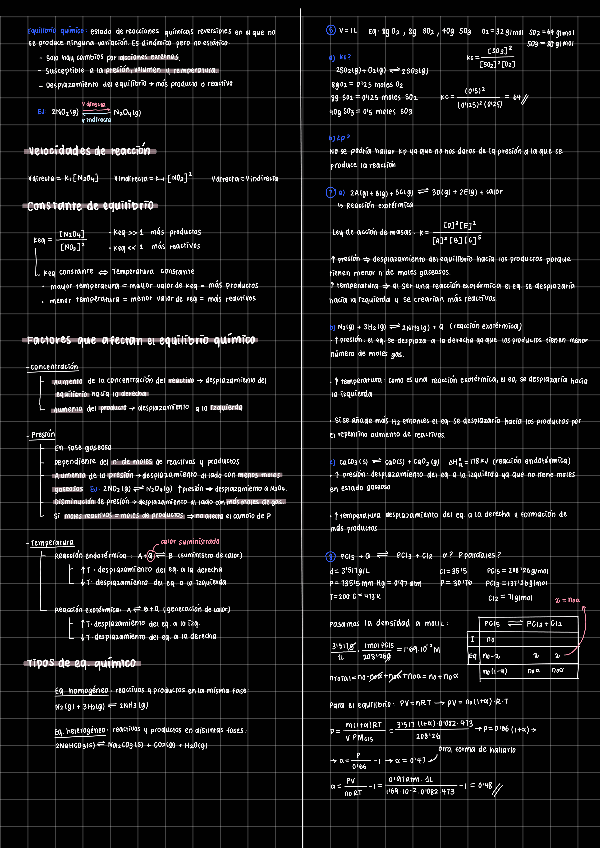 Equilibrio químico: estado de reacciones químicas reversibles en el que no
se produce ninguna variación. Es dinámico pero no estático.
- Solo hay cambios por acciones externas.
- Susceptible a la presión, volumen y temperatura.
- Desplazamiento del equilibrio → más producto o reactivo
Ej: 2NO2(g) ⇌ N2O4(g)
v directa
v indirecta
Velocidades de reacción
Vdirecta = K1[N2O4] Vindirecta = K-1[NO2]² Vdirecta = Vindirecta
Constante de equilibrio
Keq = [N2O4] / [NO2]²
· Keq >> 1 más productos
· Keq << 1 más reactivos
Keq constante ⇔ Temperatura constante
· mayor temperatura = mayor valor de Keq = más productos
· menor temperatura = menor valor de Keq = más reactivos
Factores que afectan el equilibrio químico
- Concentración
Aumento de la concentración del reactivo → desplazamiento del
equilibrio hacia la derecha
Aumento del producto → desplazamiento a la izquierda
- Presión
En fase gaseosa
Dependiente del nº de moles de reactivos y productos
Aumento de la presión → desplazamiento al lado con menos moles
gaseosos Ej: 2NO2(g) ⇌ N2O4(g) ↑presión ⇒ desplazamiento a N2O4
Disminución de presión → desplazamiento al lado con más moles de gas.
Si moles reactivos = moles de productos → no afecta el cambio de P
- Temperatura
calor suministrado
Reacción endotérmica: A+Q ⇌ B (suministro de calor)
↑T · desplazamiento del eq. a la derecha
↓T · desplazamiento del eq. a la izquierda
Reacción exotérmica: A ⇌ B+Q (generación de calor)
↑T · desplazamiento del eq. a la izq.
↓T · desplazamiento del eq. a la derecha
Tipos de eq. químico
Eq. homogéneo: reactivos y productos en la misma fase
N2(g) + 3H2(g) ⇌ 2NH3(g)
Eq. heterogéneo: reactivos y productos en distintas fases.
2NaHCO3(s) ⇌ Na2CO3(s) + CO2(g) + H2O(g)
V = 1L Eq: 8g O2, 8g SO2, 40g SO3 O2 = 32 g/mol SO2 = 64 g/mol
SO3 = 80 g/mol
a) Kc?
Kc = [SO3]² / [SO2]²[O2]
2SO2(g) + O2(g) ⇌ 2SO3(g)
8g O2 = 0'25 moles O2
8g SO2 = 0'125 moles SO2
40g SO3 = 0'5 moles SO3
Kc = (0'5)² / (0'125)²(0'25) = 64
b) Kp?
No se podría hallar Kp ya que no nos datos de la presión a la que se
produce la reacción
7 a) 2A(g) + B(g) + 5C(g) ⇌ 3D(g) + 2E(g) + calor
↳ Reacción exotérmica
Ley de acción de masas: K = [D]³[E]² / [A]²[B][C]⁵
↑ presión ⇒ desplazamiento del equilibrio hacia los productos porque
tienen menor n de moles gaseosos.
↑ temperatura ⇒ al ser una reacción exotérmica el eq. se desplazaría
hacia la izquierda y se crearían más reactivos
b) N2(g) + 3H2(g) ⇌ 2NH3(g) + Q (reacción exotérmica)
· ↑presión: el eq. se desplaza a la derecha ya que los productos tienen menor
número de moles gas.
· ↑ temperatura: como es una reacción exotérmica, el eq. se desplazaría hacia
la izquierda
· Si se añade más H2 entonces el eq. se desplazaría hacia los productos por
el repentino aumento de reactivos.
c) CaCO3(s) ⇌ CaO(s) + CO2(g) (reacción endotérmica)
· ↑ presión: desplazamiento del eq. a la izquierda ya que no tiene moles
en estado gaseoso
· ↑temperatura: desplazamiento del eq. a la derecha y formación de
más productos
PCl5 + Q ⇌ PCl3 + Cl2 α? P parciales?
T = 200 C = 473 K
Cl2 = 71 g/mol
x = n0α
Pasamos la densidad a mol/L:
PCl5 ⇌ PCl3 + Cl2
I n0
Eq n0-x x x
n0(1-α) n0α n0α
Para el equilibrio: PV = nRT → PV = n0(1+α)·R·T
otra forma de hallarlo